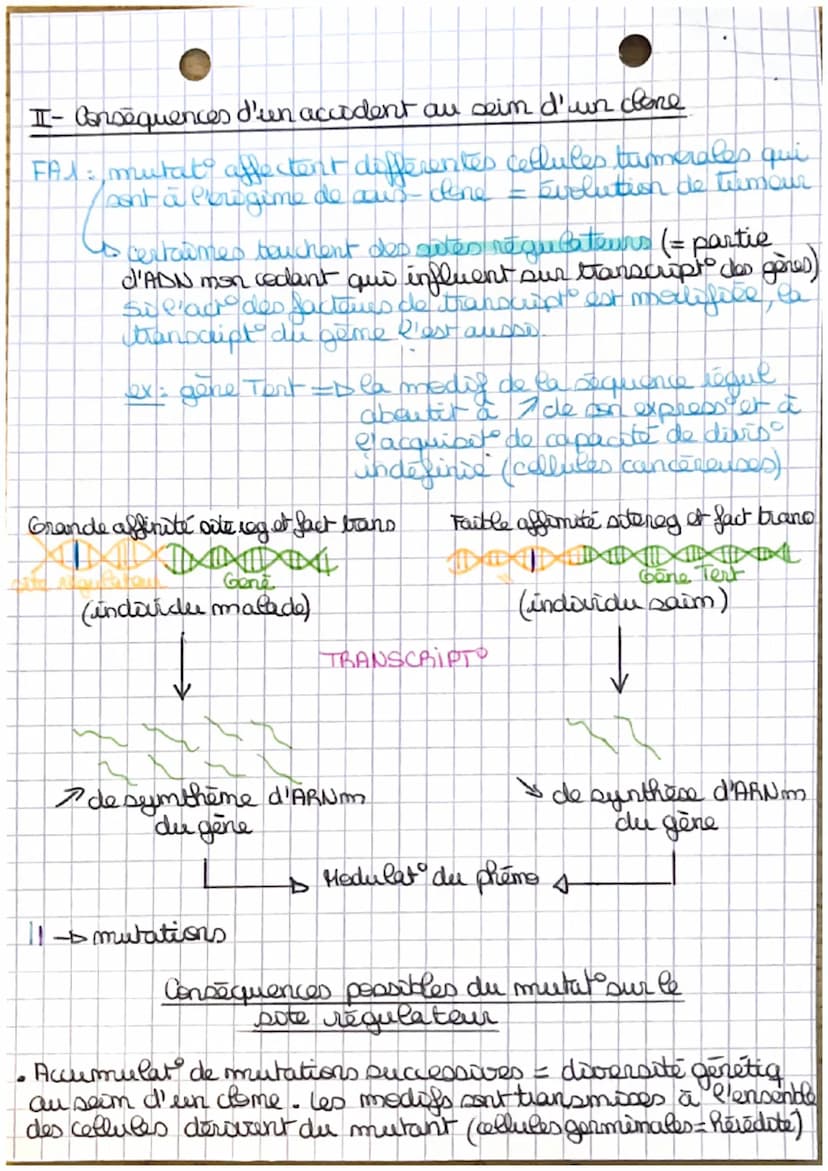 II- Conséquences d'un accident au sein d'un clone
FA1: mutat° affectent différentes cellules tumorales qui
sont à l'origine de sous-clone = Evolution de Tumeur
certaines touchent des sites régulateurs (= partie
d'ADN non codant qui influent sur transcript° des gènes)
Si l'act° des facteurs de transcript° est modifiée, la
transcript° du gène l'est aussi.
ex: gène Tert => la modif de la séquence régul
aboutit à ↗ de son express° et à
l'acquisit° de capacité de divis°
indéfinie (cellules cancéreuses)
Grande affinité site reg et fact trans
Faible affinité site reg et fact trans
site régulateur
Gène
Gène Tert
(individu malade)
(individu sain)
TRANSCRIPT°
↗ de synthème d'ARNm
du gène
↘ de synthèse d'ARNm
du gène
Modulat° du phéno
|| → mutations
Conséquences possibles du mutat° sur le
site régulateur
• Accumulat° de mutations successives = diversité génétiq
au sein d'un clone. Les modifs sont transmises à l'ensemble
des cellules dérivent du mutant (cellules germinales = Hérédité)